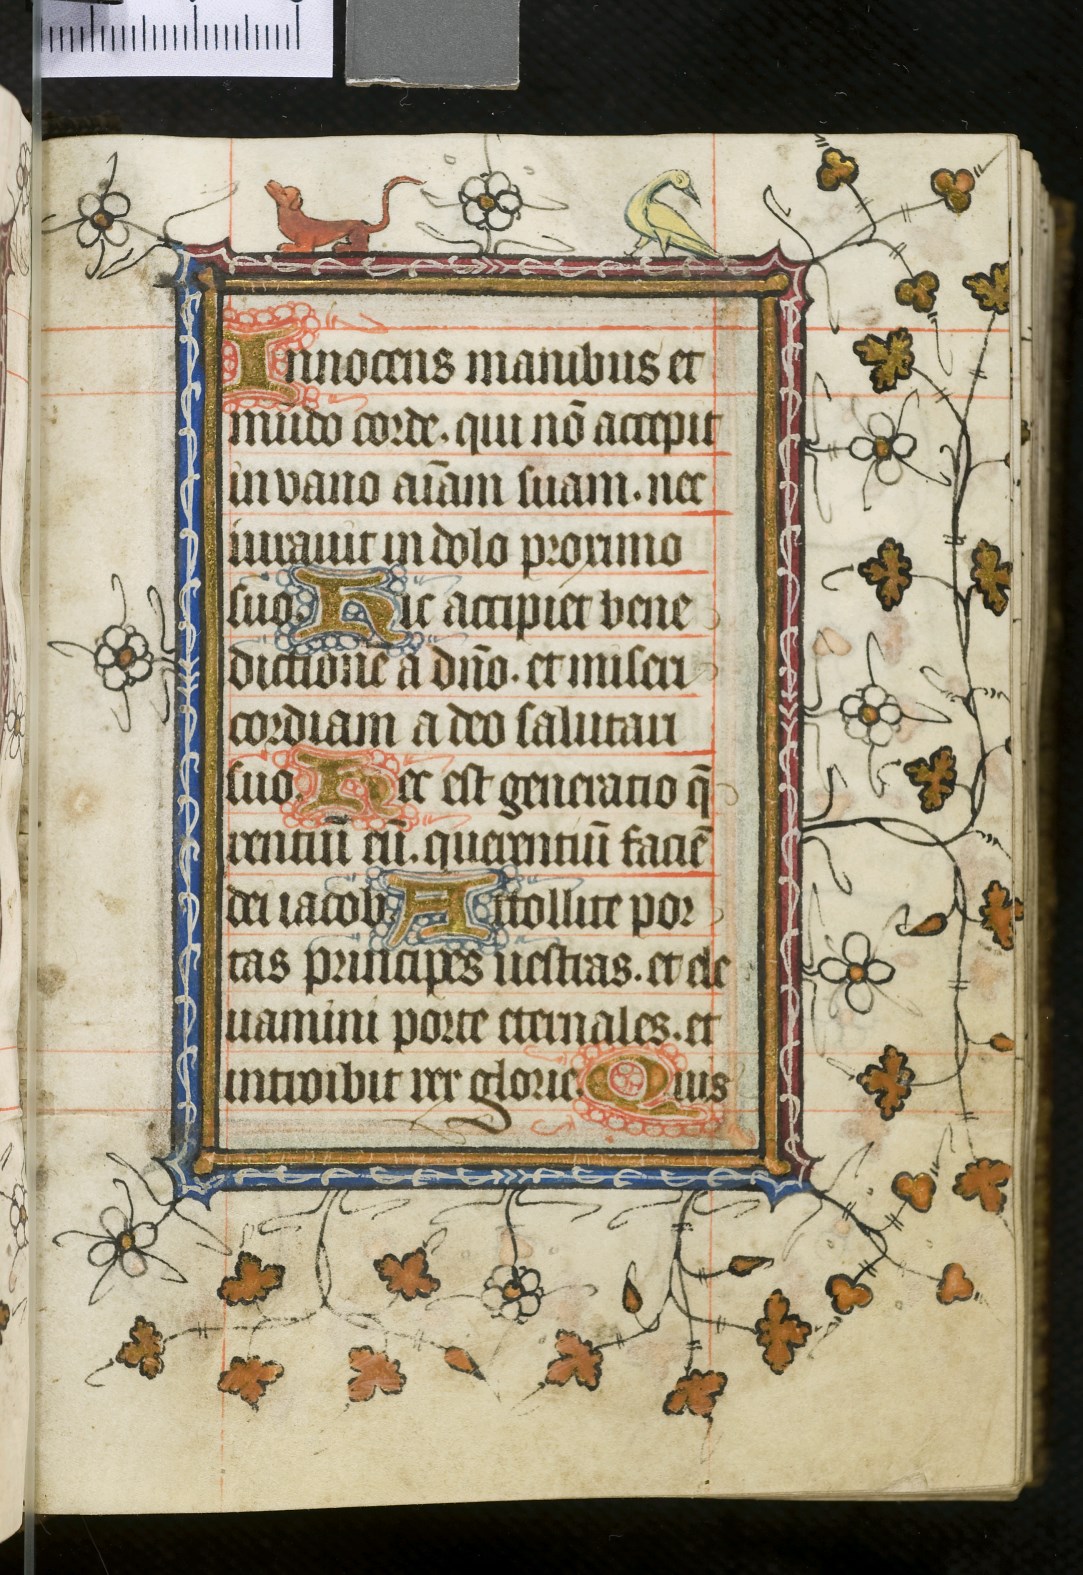 Innocens manibus et
mudo corde. qui nō accepit
in vano aīam suam. nec
iurauit in dolo proximo
suo. Hic accipiet bene
dictionē a dño. et miseri
cordiam a deo salutari
suo. Hec est generatio q̄
rentiū eū. querentiū faciē
dei iacob Attollite por
tas principes uestras. et ele
uamini porte eternales. et
introibit rex glorie. Quis